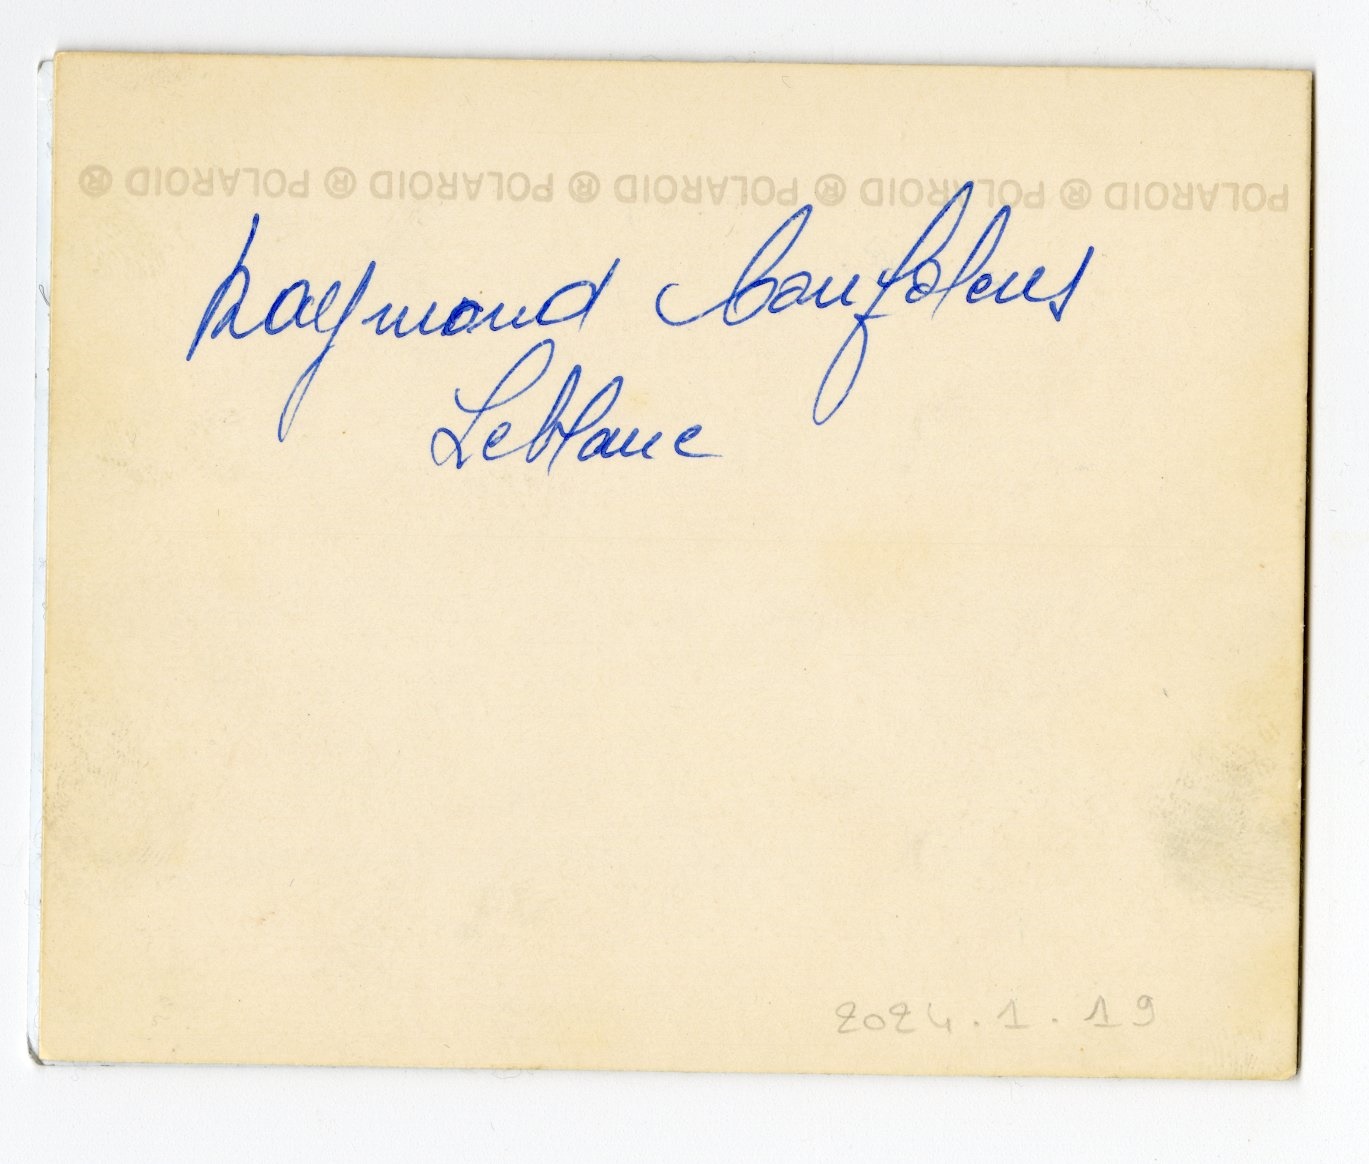 POLAROID ® POLAROID ® POLAROID ® POLAROID ® POLAROID ®
Raymond
Leblanc
2024.1.19